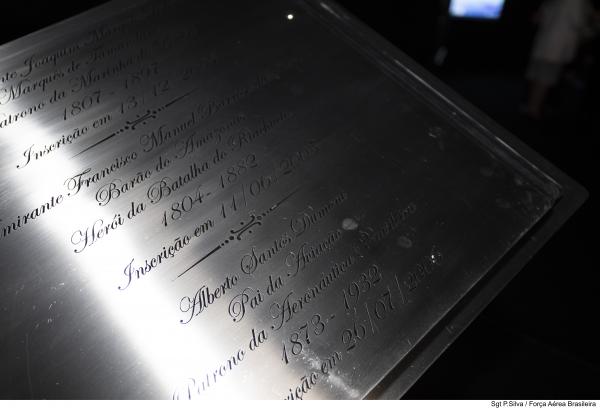 nte Joaquim Marques
Marquês de Tamandaré
Patrono da Marinha do
1807 - 1897
Inscrição em 13/12/
mirante Francisco Manuel Barroso da
Barão do Amazonas
Herói da Batalha do Riachuelo
1804 - 1882
Inscrição em 11/06/
Alberto Santos Dumont
Pai da Aviação
Patrono da Aeronáutica Brasileira
1873 - 1932
crição em 26/07/2006
Sgt P.Silva / Força Aérea Brasileira